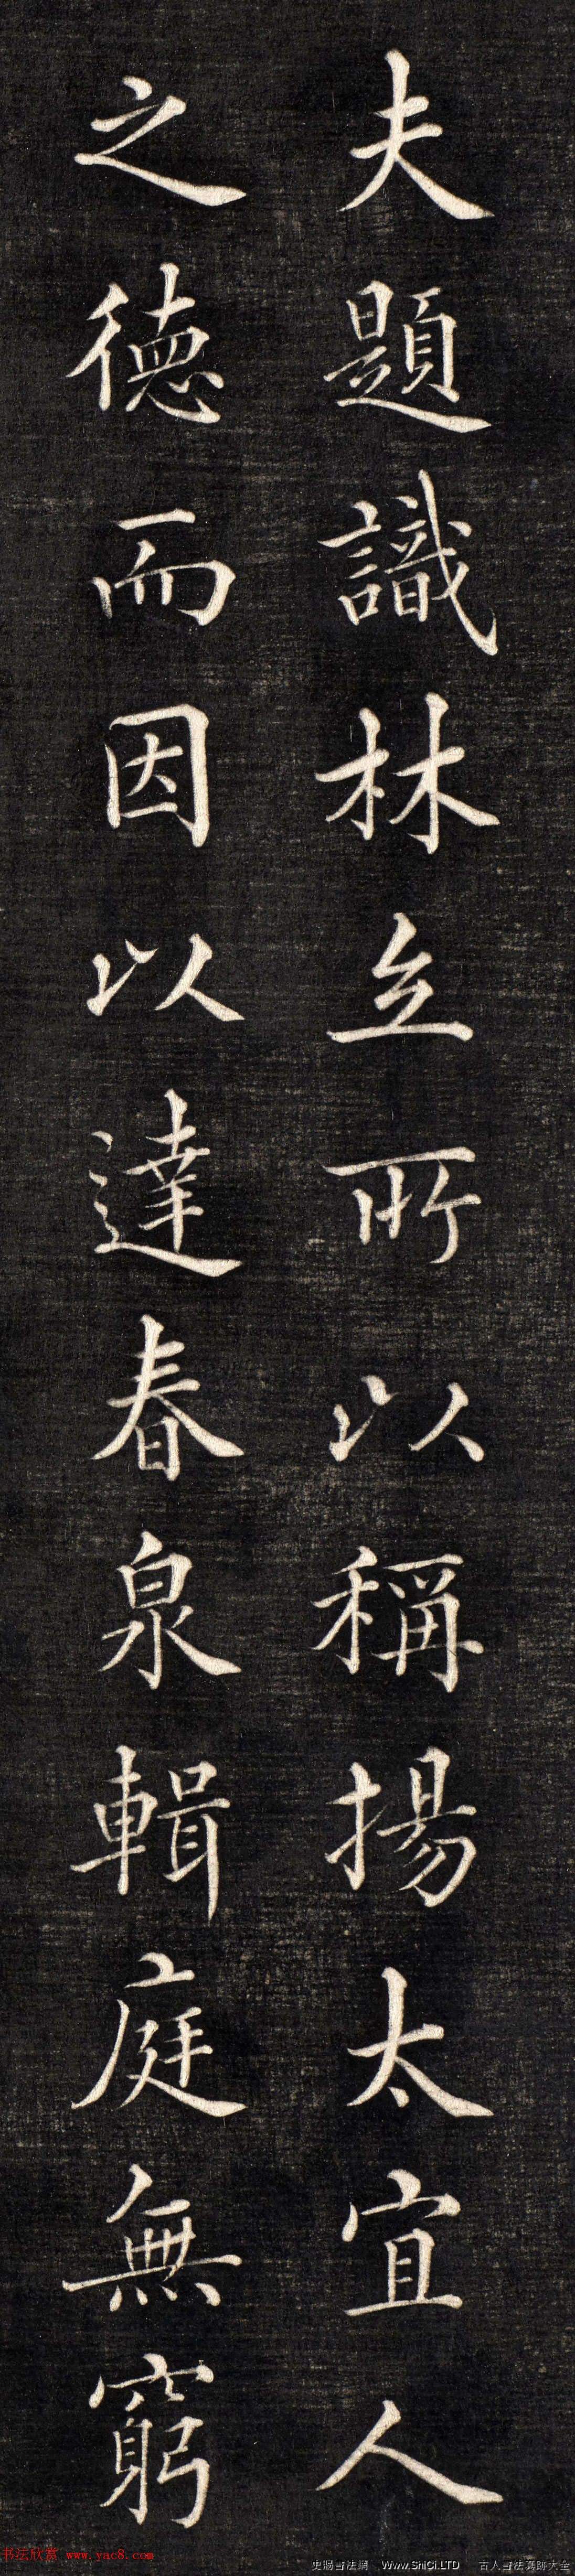 夫題識林立所以稱揚太宜人
之德而因以達春泉輯庭無窮
书法欣赏 www.yac8.com
史賜書法網 www.ShiCi.LTD 古人書法真跡大全